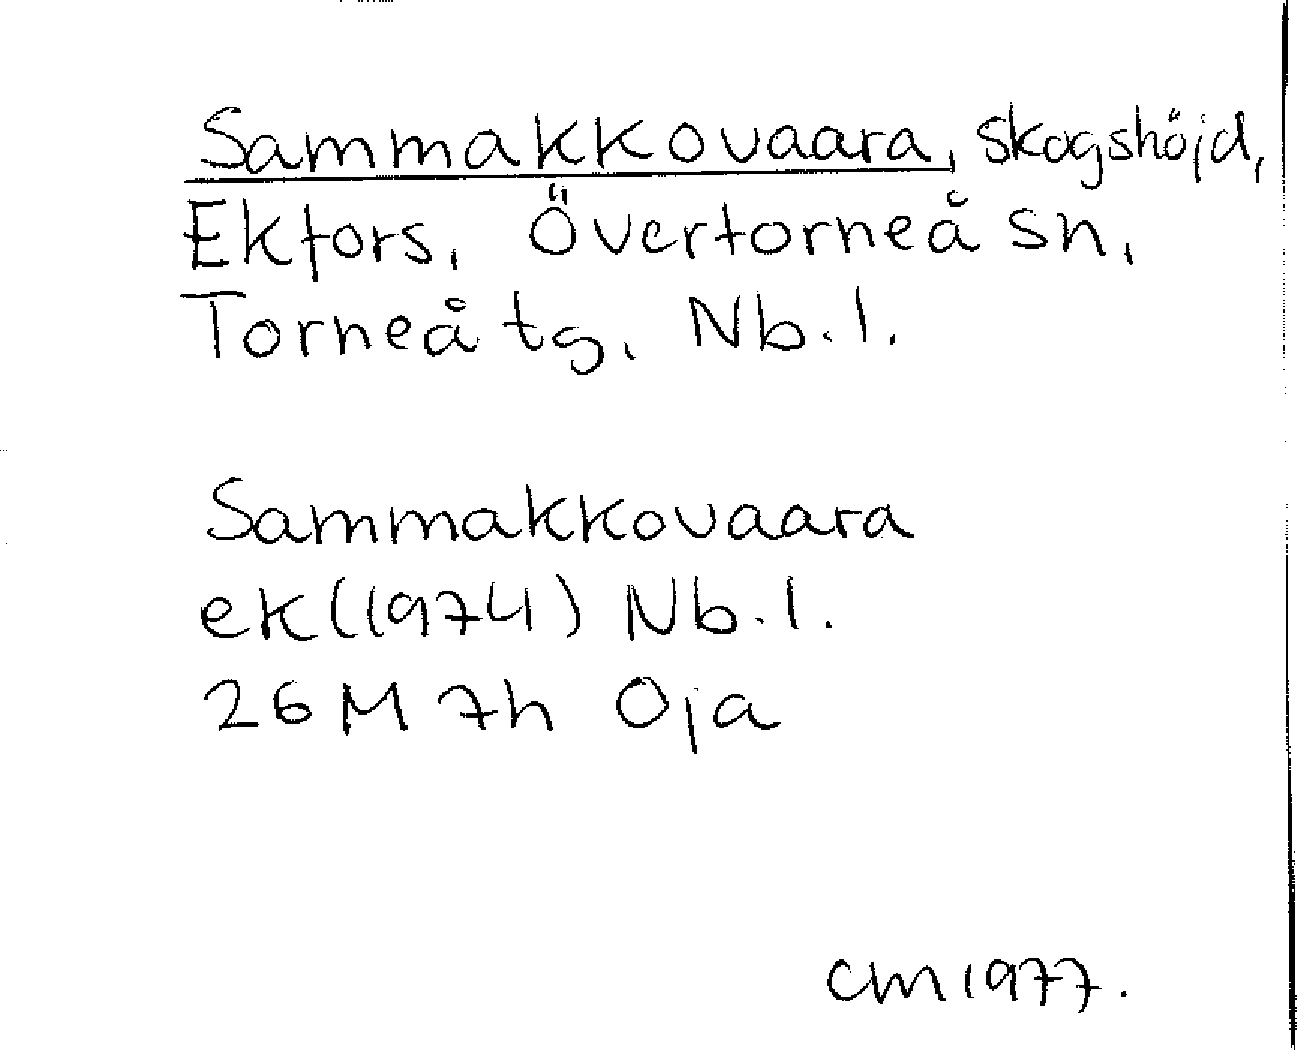 Sammakkovaara, skogshöjd,
Ekfors, Övertorneå sn,
Torneå tg, Nb.l.
Sammakkovaara
ek(1974) Nb.l.
26M 7h Oja
CM1977.